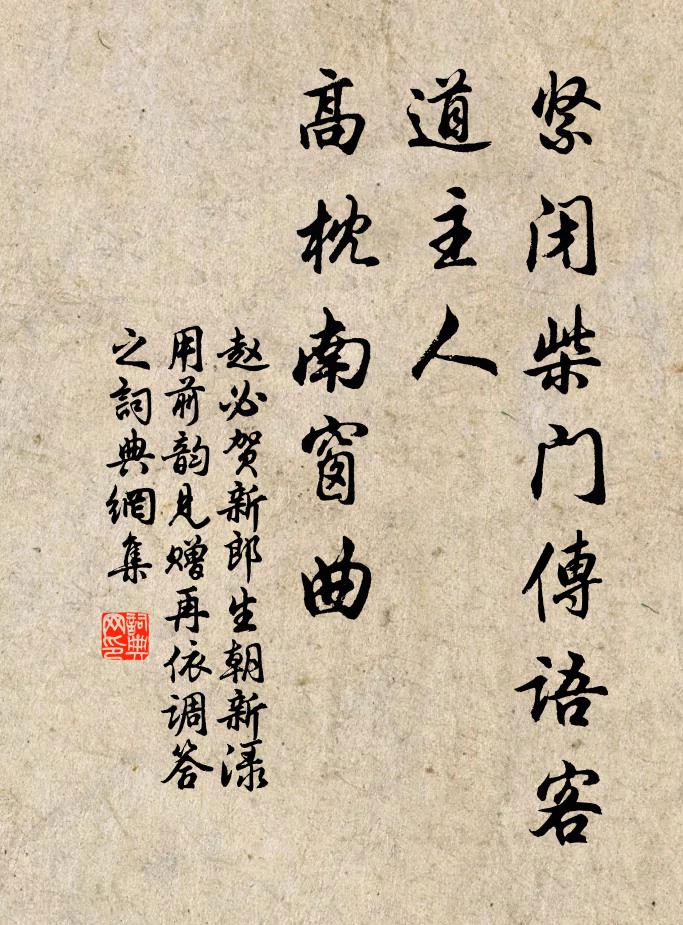 紧闭柴门傳语客
道主人
高枕南窗曲
赵必贺新郎生朝新渌
用前韵见赠再依调答
之詞典網集
詞典网印